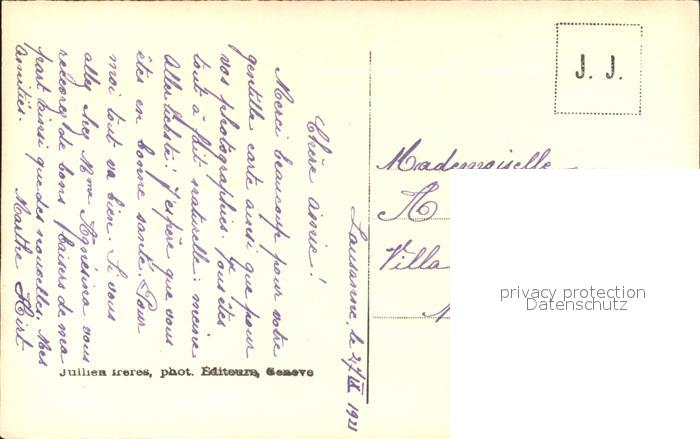 Lausanne, le 27/IX 1921
Chère amie!
Merci beaucoup pour votre
gentille carte ainsi que pour
vos photographies. Vous êtes
tout à fait naturelle:
J'espère que vous
êtes en bonne santé. Pour
moi tout va bien. Si vous
allez chez Mme vous
recevrez de bons baisers de ma
part ainsi que des nouvelles. Mes
amitiés. Marthe Hirt
J. J.
Mademoiselle
Villa
Jullien frères, phot. Editeurs, Genève
privacy protection
Datenschutz